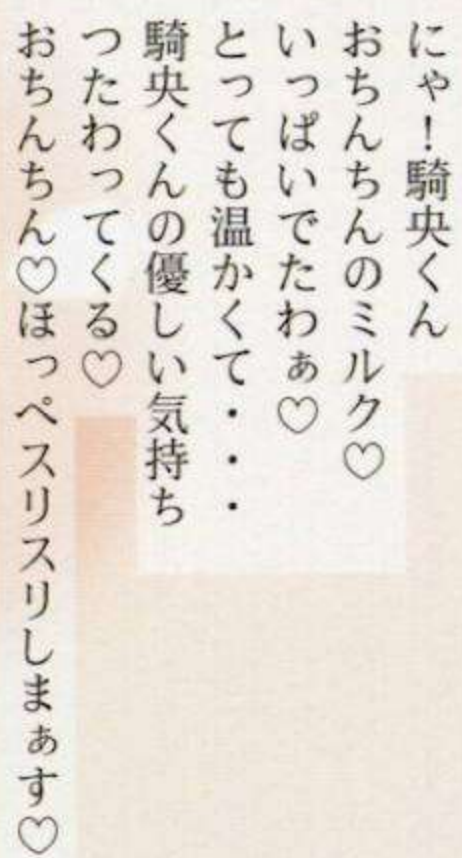 にゃ！騎央くん
おちんちんのミルク♡
いっぱいでたわぁ♡
とっても温かくて・・・
騎央くんの優しい気持ち
つたわってくる♡
おちんちん♡ほっぺスリスリしまぁす♡